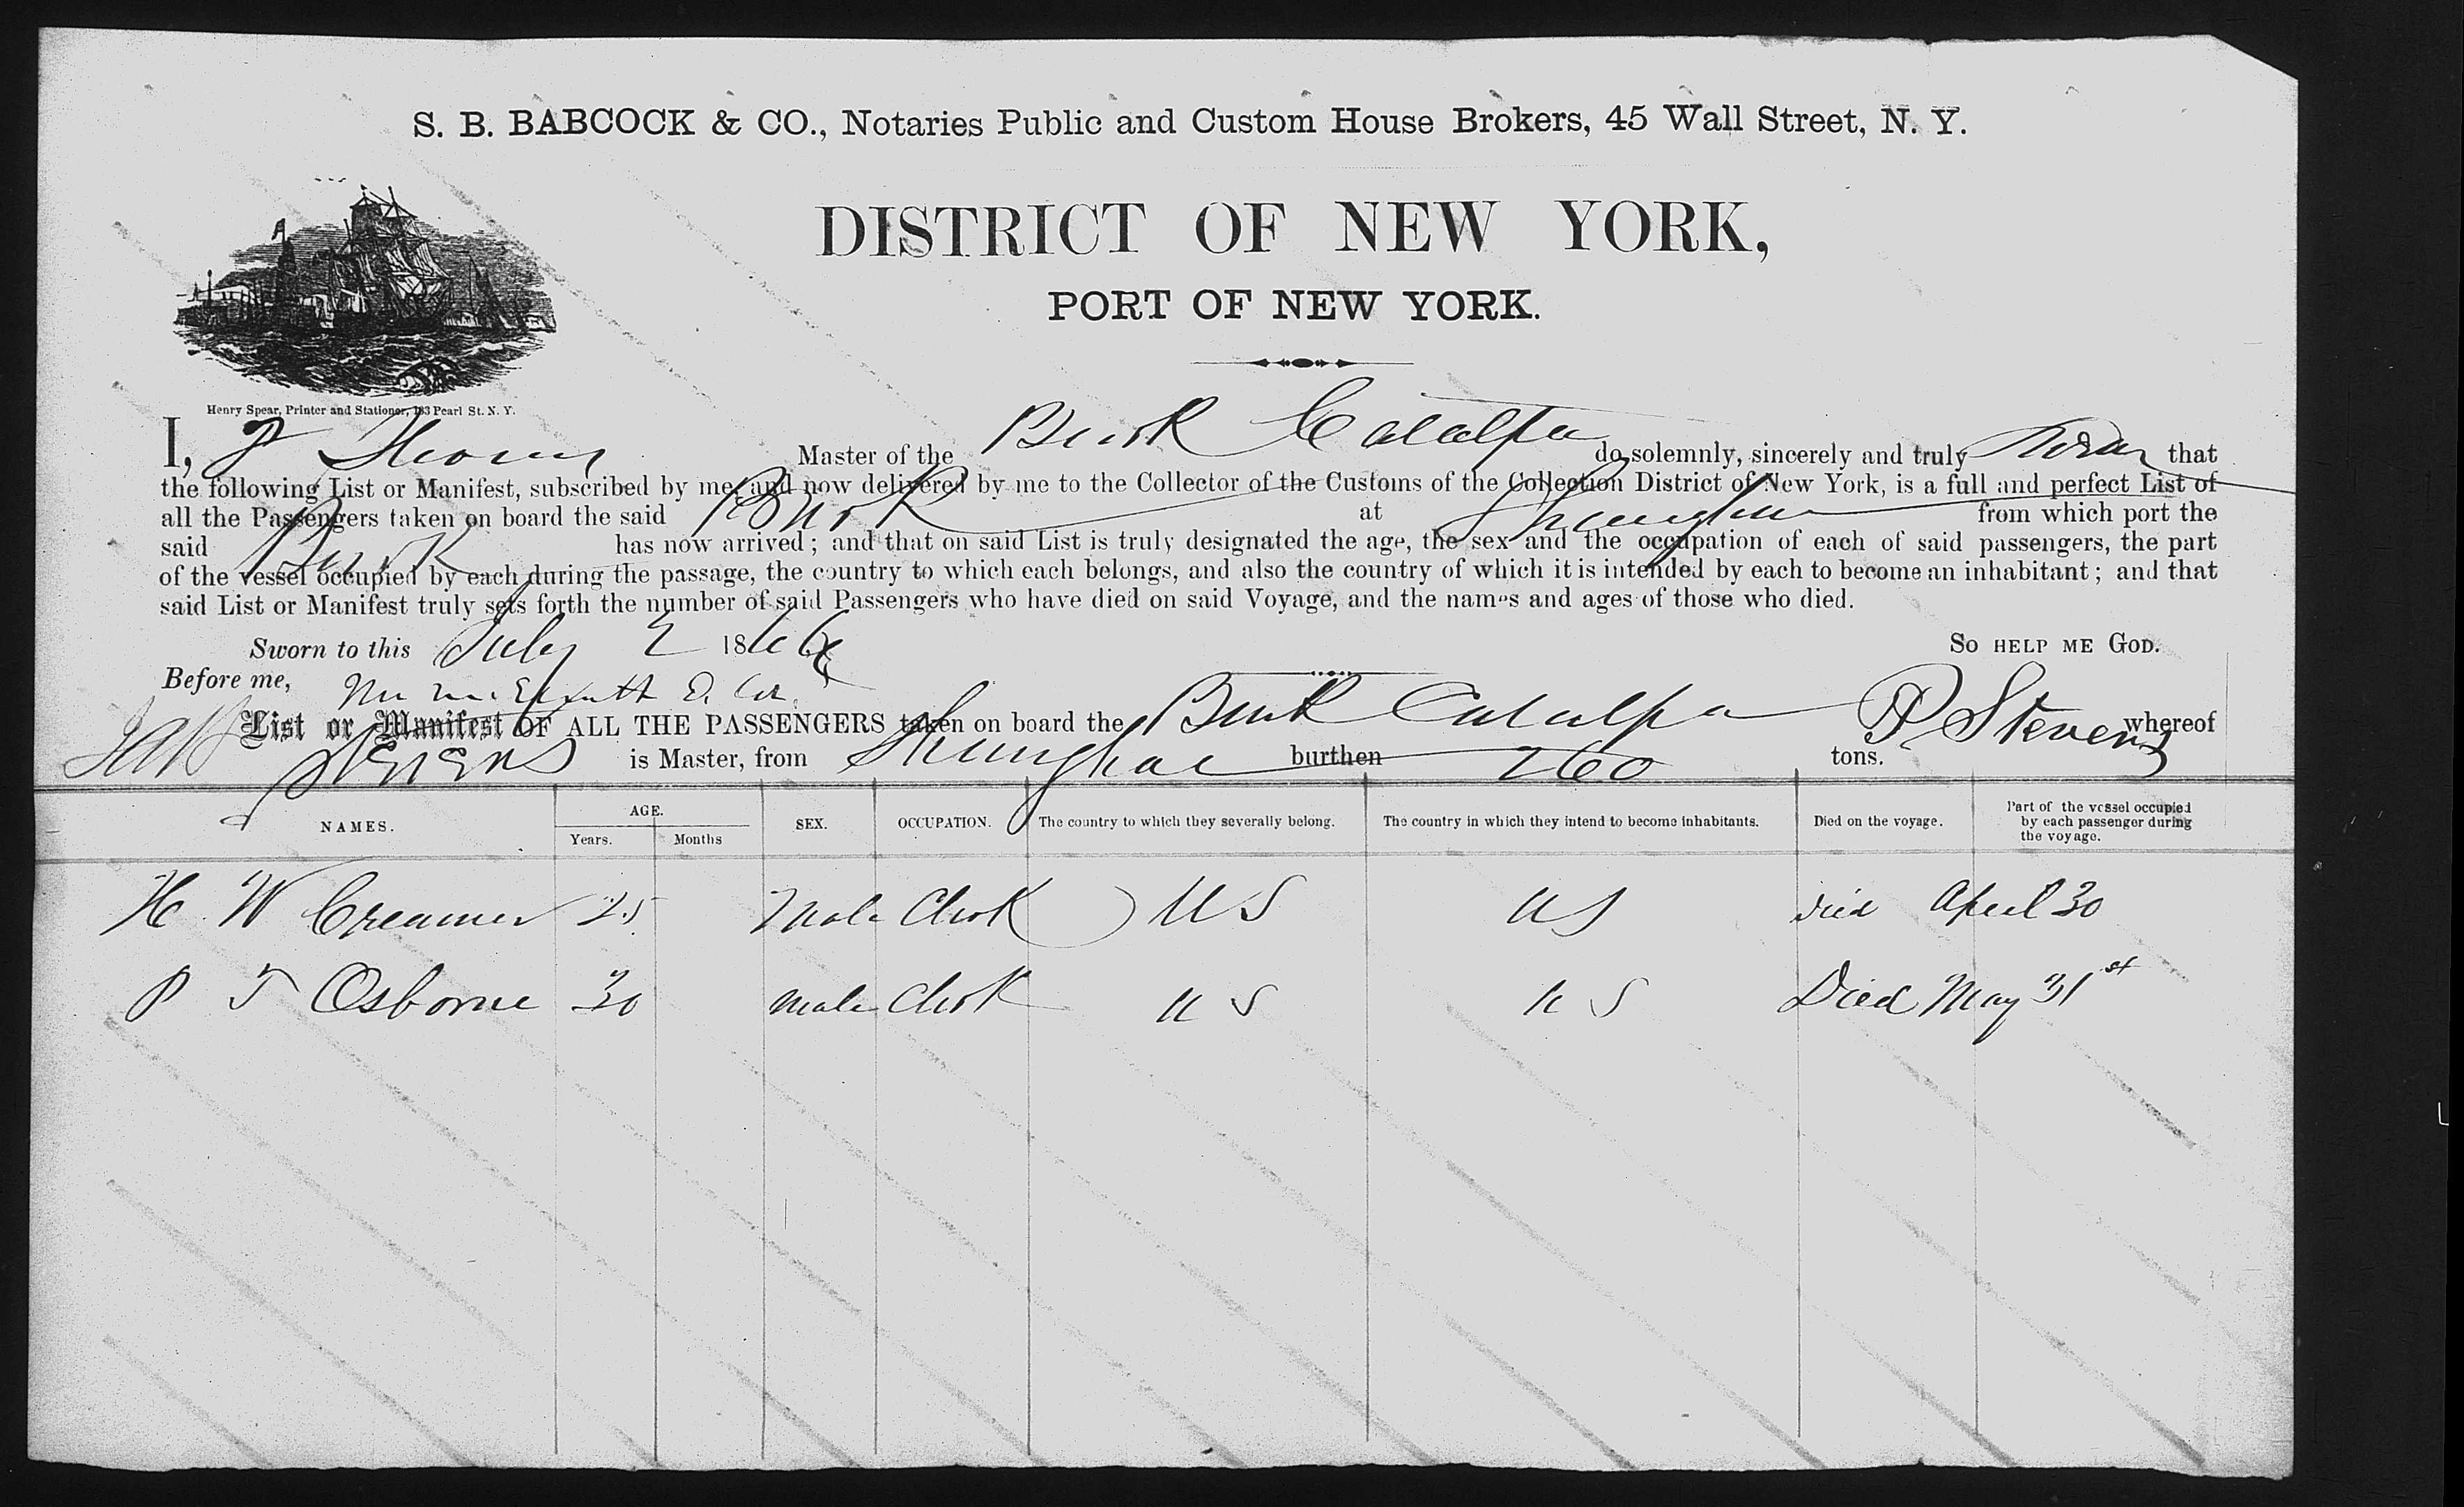 S. B. BABCOCK & CO., Notaries Public and Custom House Brokers, 45 Wall Street, N. Y.
DISTRICT OF NEW YORK,
PORT OF NEW YORK.
Henry Spear, Printer and Stationer, 183 Pearl St. N. Y.
I, Master of the Bark Catalpa do solemnly, sincerely and truly swear that
the following List or Manifest, subscribed by me, and now delivered by me to the Collector of the Customs of the Collection District of New York, is a full and perfect List of
all the Passengers taken on board the said Bark at Shanghai from which port the
said Bark has now arrived; and that on said List is truly designated the age, the sex and the occupation of each of said passengers, the part
of the vessel occupied by each during the passage, the country to which each belongs, and also the country of which it is intended by each to become an inhabitant; and that
said List or Manifest truly sets forth the number of said Passengers who have died on said Voyage, and the names and ages of those who died.
Sworn to this July 2 1866 SO HELP ME GOD.
Before me,
List or Manifest OF ALL THE PASSENGERS taken on board the Bark Catalpa P Stevens whereof
Stevens is Master, from Shanghae burthen 260 tons.
NAMES. AGE. Years. Months SEX. OCCUPATION. The country to which they severally belong. The country in which they intend to become inhabitants. Died on the voyage. Part of the vessel occupied by each passenger during the voyage.
H. W Creamer 25 Male Clerk U S U S Died April 30
P T Osborne 30 male Clerk U S U S Died May 31st